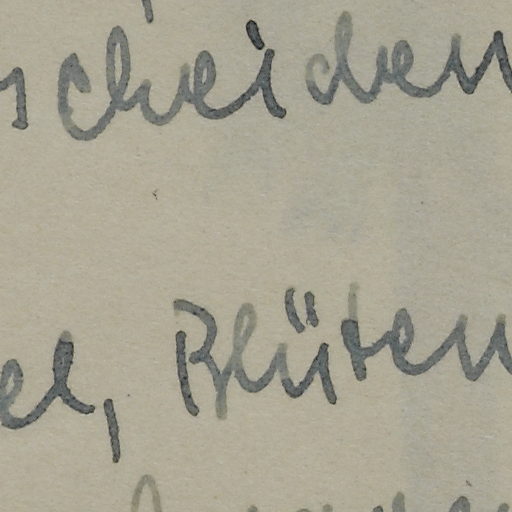 scheiden
el, Blüten